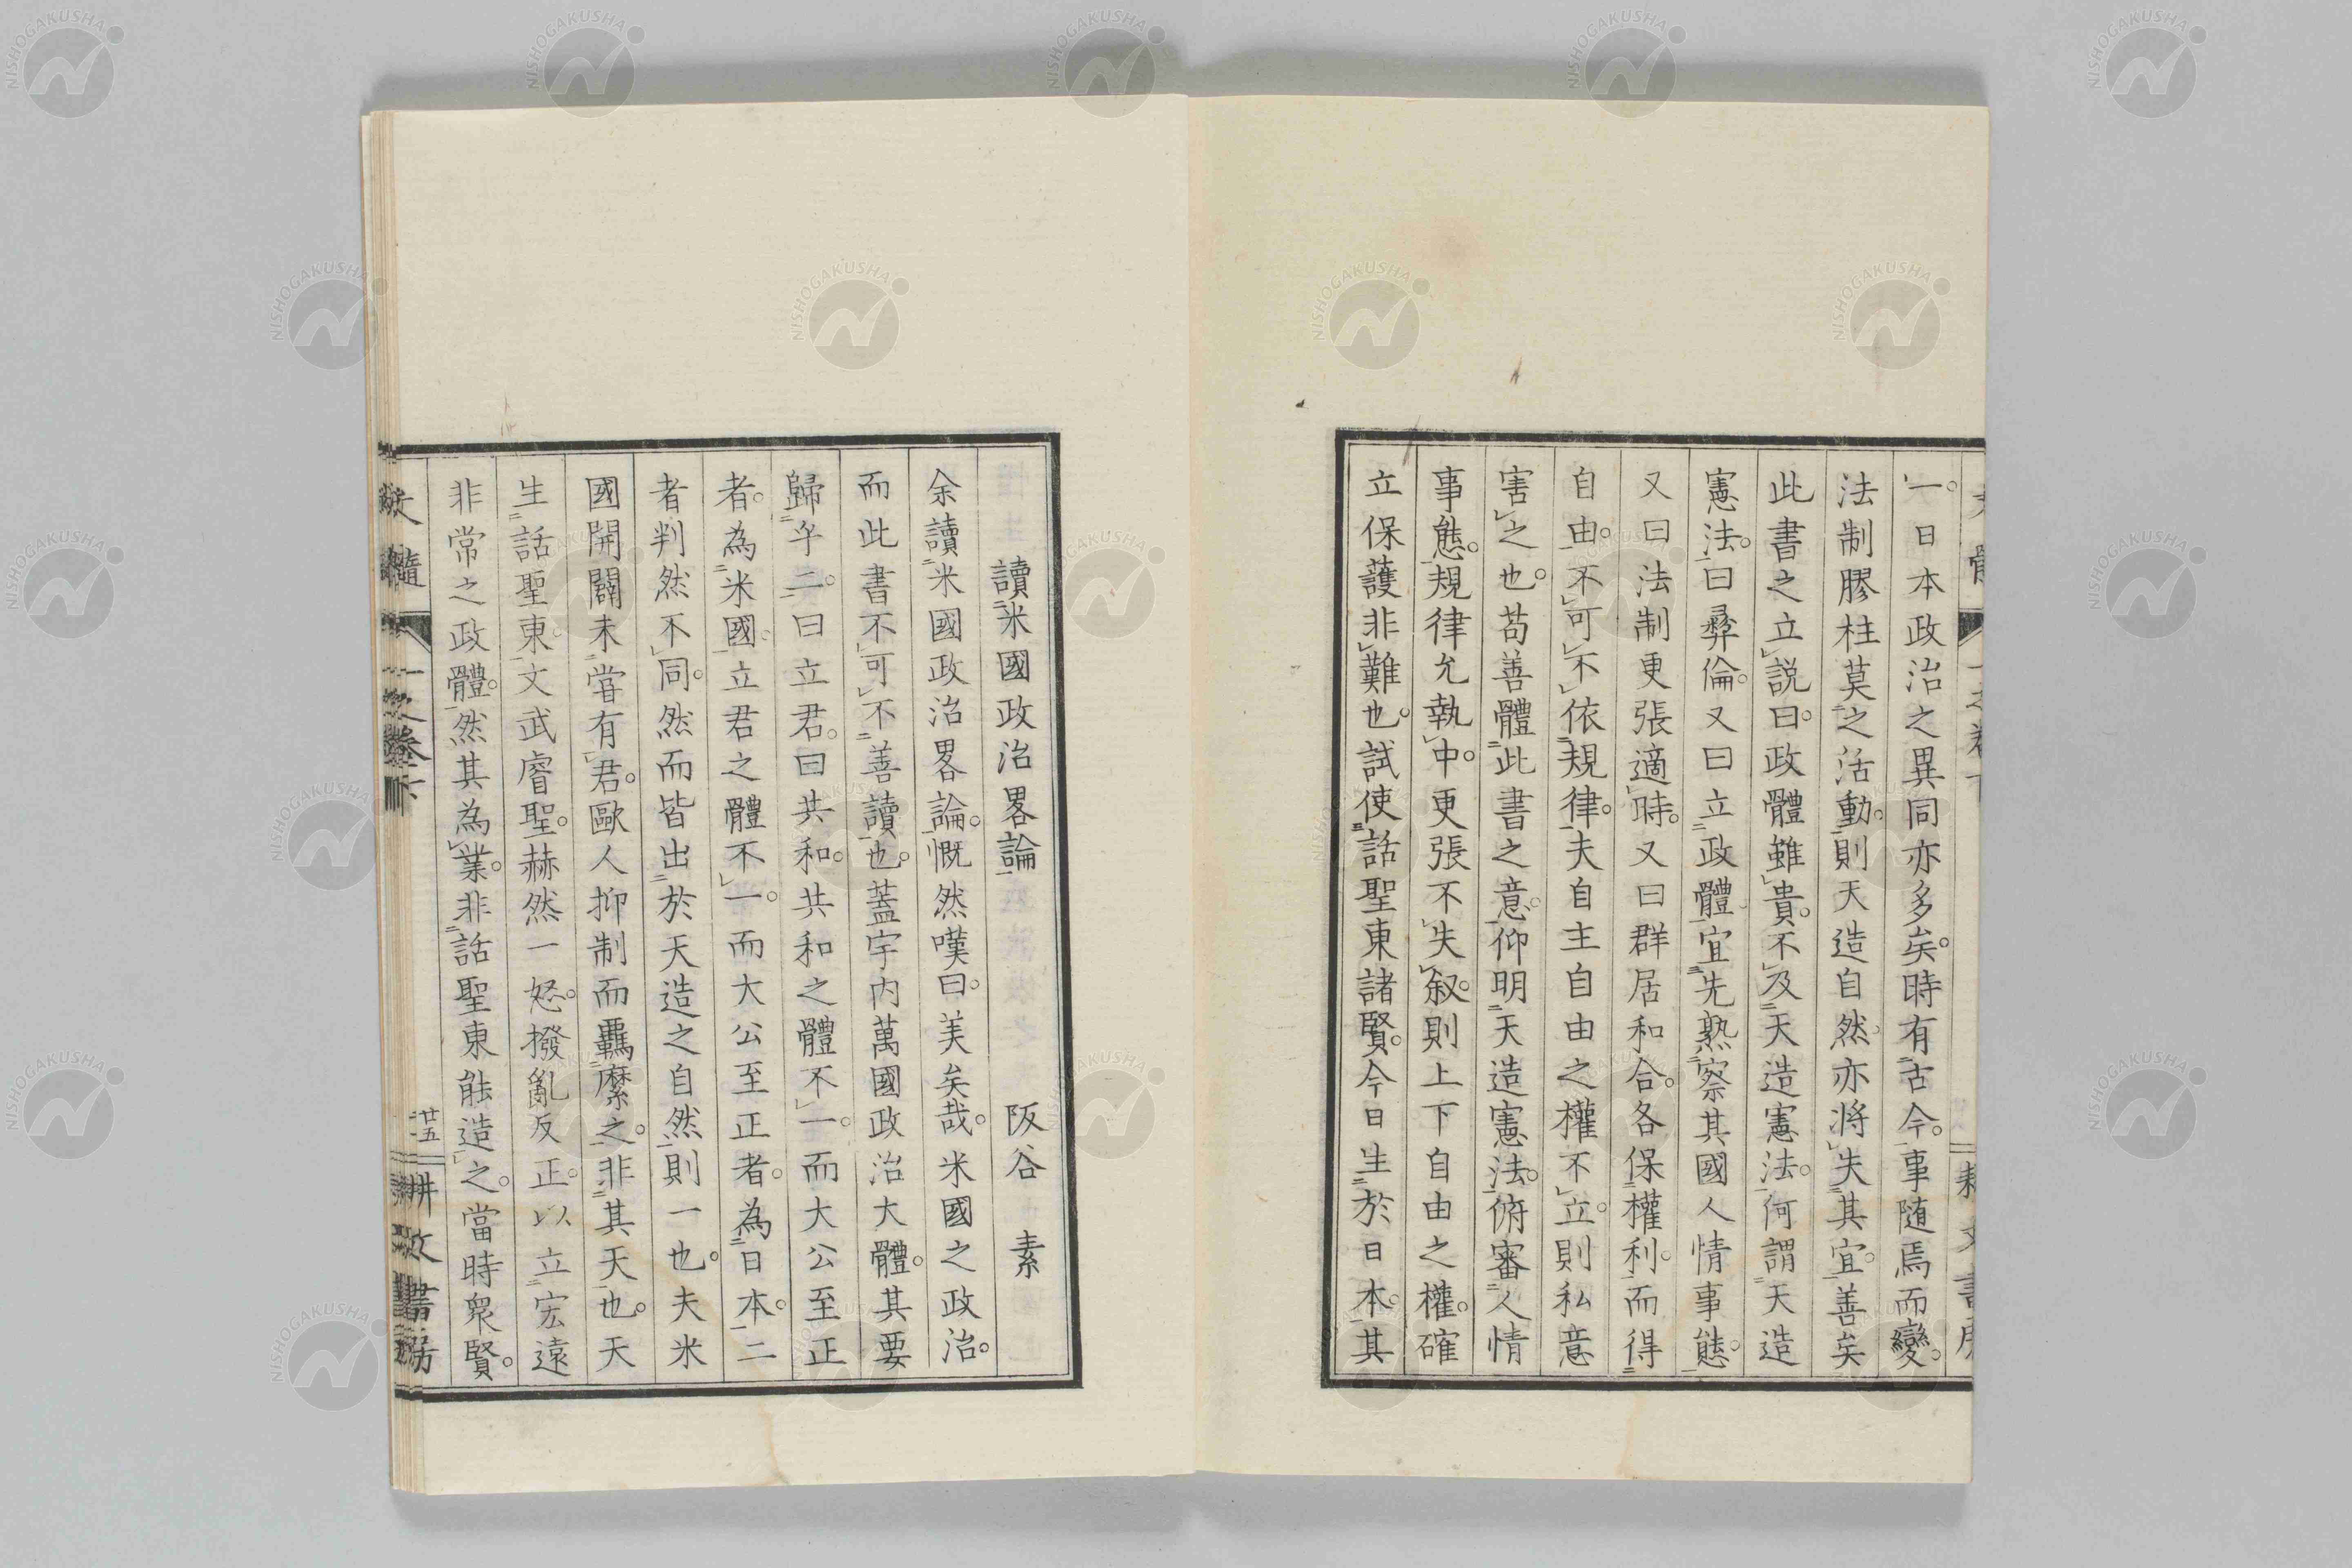 一。日本政治之異同亦多矣。時有古今。事随焉而變。
法制膠柱莫之活動。則天造自然。亦將失其宜。善矣
此書之立説。曰。政體雖貴。不及天造憲法。何謂天造
憲法。曰彛倫。又曰立政體。宜先熟察其國人情事態。
又曰法制更張適時。又曰群居和合。各保權利。而得
自由。不可不依規律。夫自主自由之權不立。則私意
害之也。苟善體此書之意。仰明天造憲法。俯審人情
事態。規律允執中。更張不失叙。則上下自由之權。確
立保護非難也。試使話聖東諸賢。今日生於日本。其
讀米國政治畧論
阪谷 素
余讀米國政治畧論。慨然嘆曰。美矣哉。米國之政治。
而此書不可不善讀也。蓋宇内萬國政治大體。其要
歸乎二。曰立君。曰共和。共和之體不一。而大公至正
者。為米國。立君之體不一。而大公至正者。為日本。二
者判然不同。然而皆出於天造之自然。則一也。夫米
國開闢未嘗有君。歐人抑制而羈縻之。非其天也。天
生話聖東。文武睿聖。赫然一怒。撥亂反正。以立宏遠
非常之政體。然其為業。非話聖東能造之。當時衆賢。
一之卷下
廿五
耕文書房
NISHOGAKUSHA